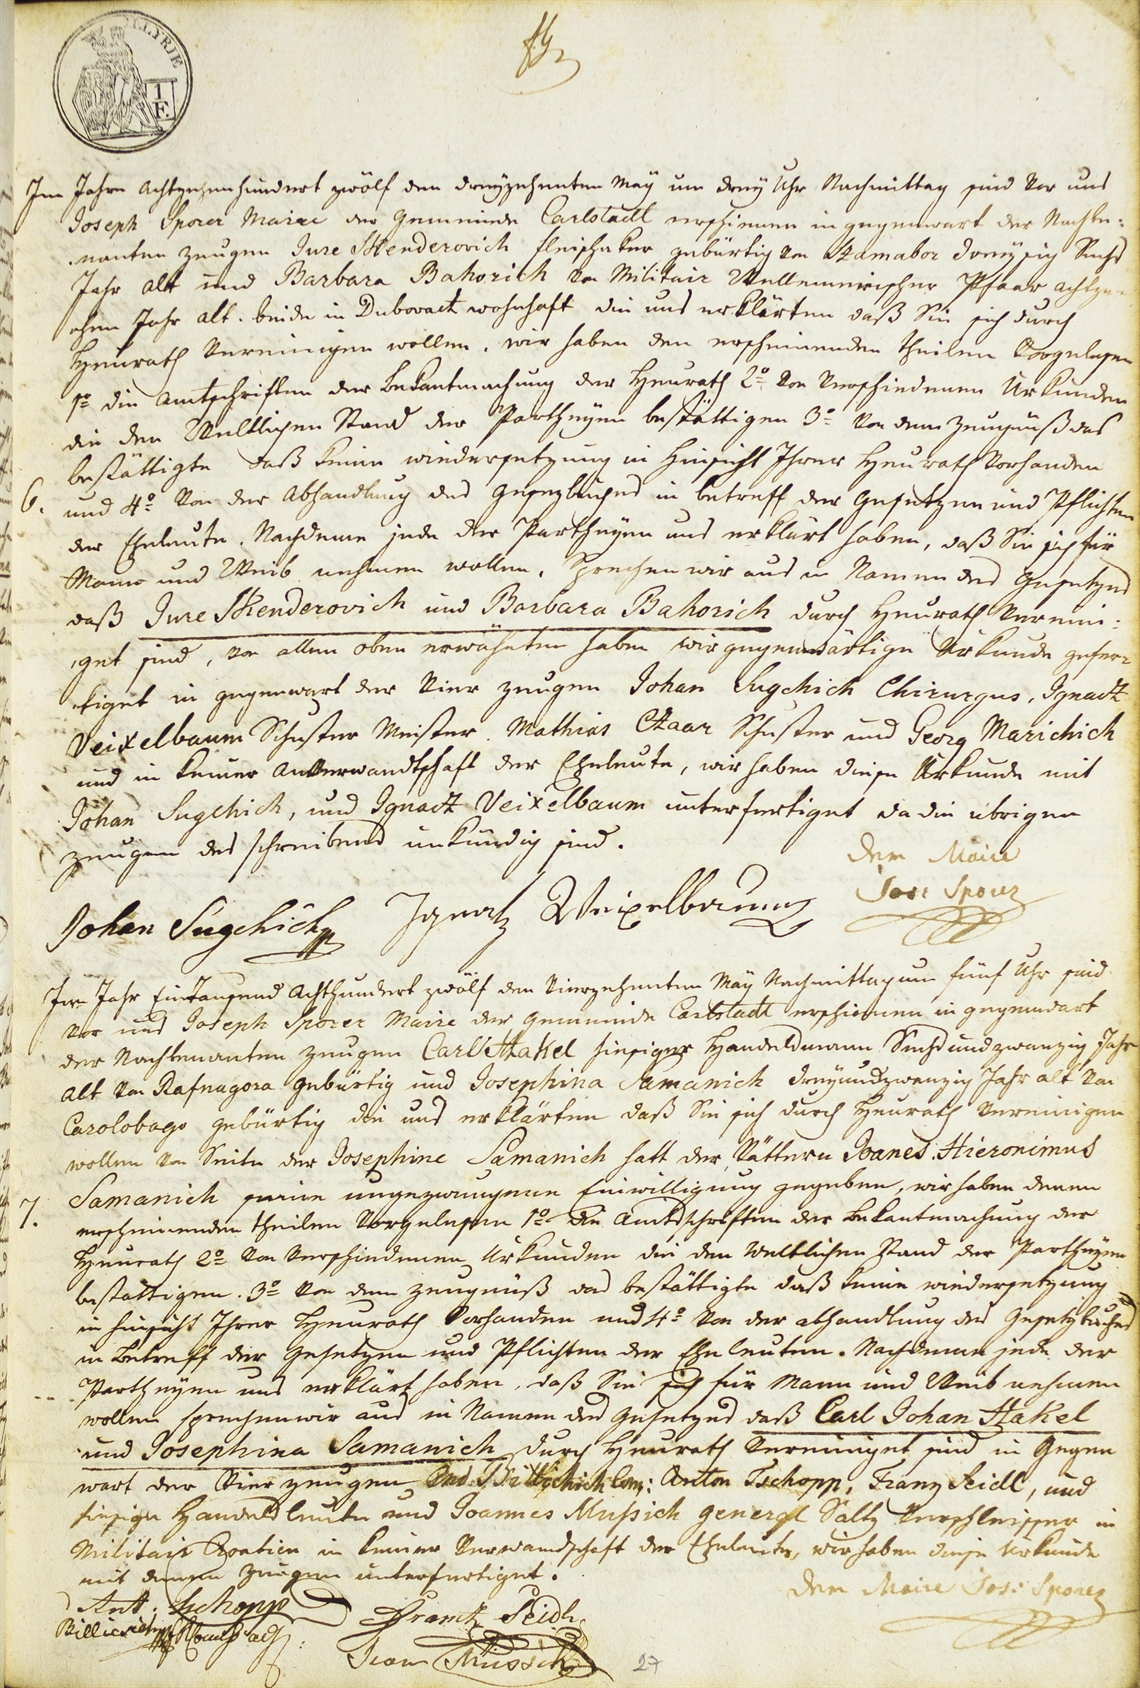 ILLYRIE
T
F.
Im Jahre Achtzehenhundert zwölf den dreyzehenten May um drey Uhr Nachmittag sind vor uns
Joseph Sporer Maire der Gemeinde Carlstadt erschienen in gegenwart der Nachbe-
nanten zeugen Jure Skenderovich fleischaker gebürtig von Szamabor dreysig Sechs
Jahr alt und Barbara Bahorich von Militair Pfaar achtze-
ehen Jahr alt. beide in Dubovatz wohnhaft die uns erklärten daß Sie sich durch
Heurath Vereinigen wollen. wir haben den erscheinenden theilen Vorgelesen
1º die Amtschriften der bekantmachung der Heurath 2º von Verschiedenen Urkunden
die den Weltlichen Stand der Partheyen bestättigen 3º von dem zeugnüß das
bestättigte daß keine wiedersetzung in hinsicht Ihrer Heurath Vorhanden
6. und 4º von der Abhandlung des Gesezbuches in betreff der Gesetzen und Pflichten
der Eheleute. Nachdeme jede der Partheyen uns erklärt haben, daß Sie sich für
Mann und Weib nehmen wollen. Sprechen wir aus in Namen des Gesetzes
daß Jure Skenderovich und Barbara Bahorich durch Heurath Verein-
iget sind, von allen oben erwähnten haben wir gegenwärtige Urkunde gefer-
tiget in gegenwart der Vier zeugen Johan Sugchich Chirurgus, Ignatz
Veixelbaum Schuster Meister. Mathias Czaar Schuster und Georg Marichich
und in keiner Anverwandtschaft der Eheleute, wir haben diese Urkunde mit
Johan Sugchich, und Ignatz Veixelbaum unterfertiget da die übrigen
zeugen des schreibens unkündig sind.
Der Maire
Jos: Sporer
Johan Sugchich Ignatz Weixelbaum
Im Jahr Eintausend Achthundert zwölf den Vierzehenten May Nachmittag um fünf Uhr sind
vor uns Joseph Sporer Maire der Gemeinde Carlstadt erschienen in gegenwart
der Nachbenanten zeugen Carl Hakel hiesiger Handelsmann Sechsundzwanzig Jahr
alt von Rafnagora gebürtig und Josephina Samanich dreyundzwanzig Jahr alt von
Carolobago gebürtig die uns erklärten daß Sie sich durch Heurath Vereinigen
wollen von Seite der Josephine Samanich hatt der Vättern Joanes Hieronimus
7. Samanich seine ungezwungene Einwilligung gegeben, wir haben denen
erscheinenden theilen Vorgelesen 1º die Amtsschriften der bekantmachung der
Heurath 2º von Verschiedenen Urkunden die den Weltlichen Stand der Partheyen
bestättigen. 3º von dem zeugnüß das bestättigte daß keine wiedersetzung
in hinsicht Ihrer Heurath Vorhanden und 4º von der abhandlung des Gesetzbuches
in Betreff der Gesetzen und Pflichten der Eheleuten. Nachdeme jede der
Partheyen uns erklärt haben, daß Sie sich für Mann und Weib nehmen
wollen sprechen wir aus in Namen des Gesetzes daß Carl Johan Hakel
und Josephina Samanich durch Heurath Vereiniget sind in Gegen
wart der Vier zeugen Anton Tschopp, Franz Seidl, und
hiesige Handelsleute und Joannes Mussich general Saltz Verschleisser in
Militair Croatien in keiner Verwandschaft der Eheleute, wir haben diese Urkunde
mit denen zeugen unterfertiget.
Der Maire Jos: Sporer
Ant: Tschopp Frantz Seidl
Jean Mussich
27